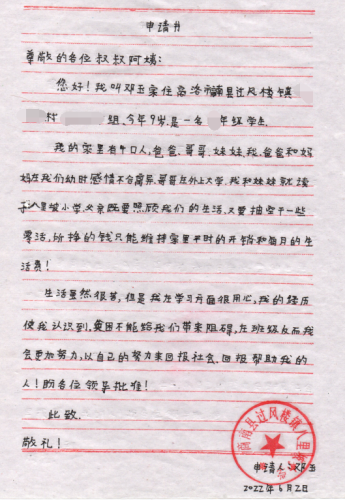 申请书
尊敬的各位叔叔阿姨：
您好！我叫邓玉家住商洛市商南县过风楼镇
村 组.今年9岁,是一名 年级学生.
我的家里有4口人,爸爸、哥哥、妹妹、我、爸爸和妈
妈在我们幼时感情不合离异,哥哥在外上大学,我和妹妹就读
于八里坡小学,父亲既要照顾我们的生活,又要抽空干一些
零活,所挣的钱只能维持家里平时的开销和每月的生
活费！
生活虽然很苦,但是我在学习方面很用心,我的经历
使我认识到,贫困不能给我们带来阻碍,在班级反而我
会更加努力,以自己的努力来回报社会.回报帮助我的
人！盼各位领导批准！
此致.
敬礼！
商南县过风楼镇八里坡
申请人:邓玉
2022年6月2日